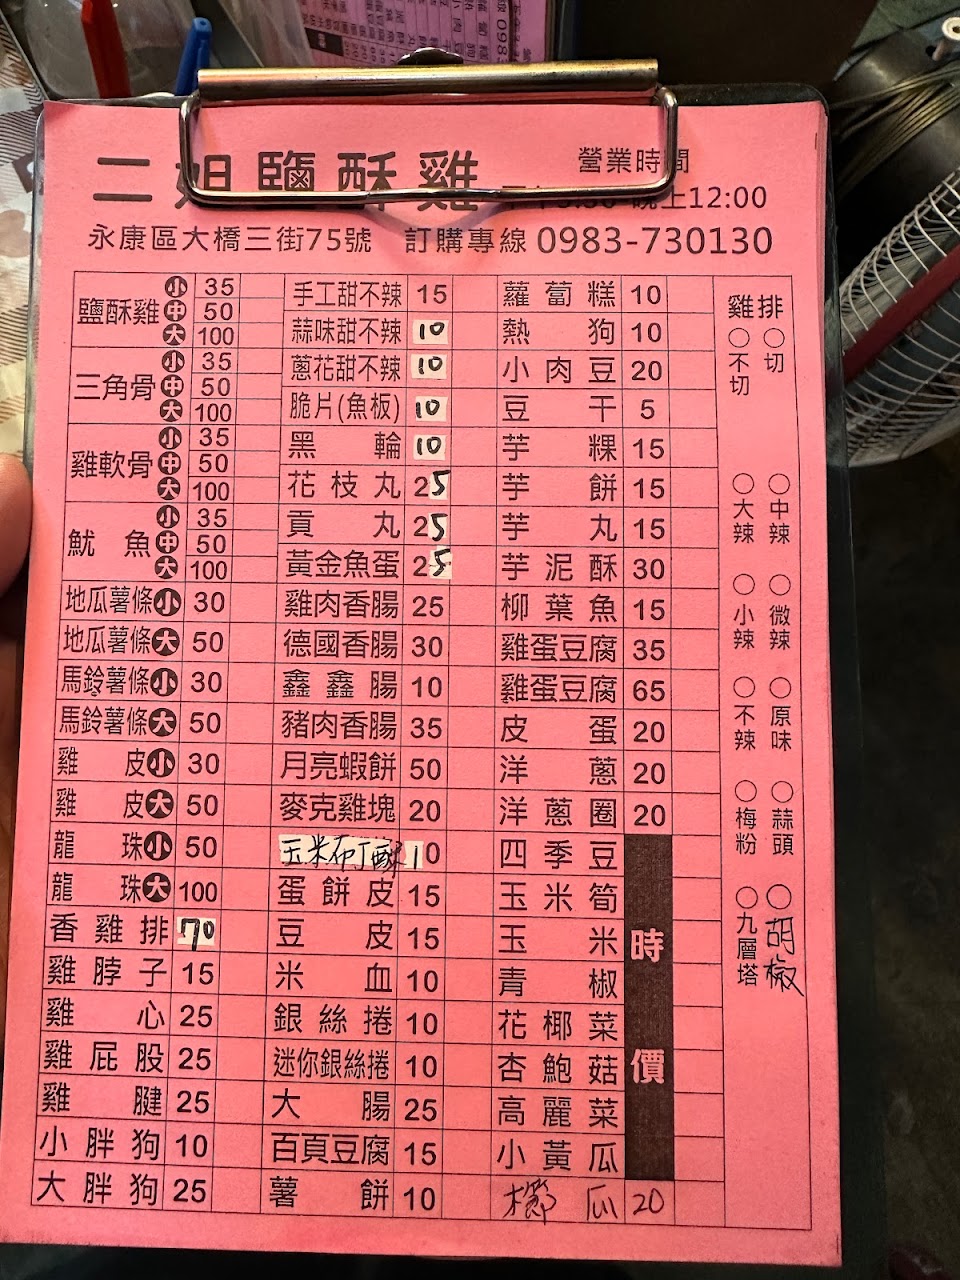 二姐鹽酥雞
營業時間
晚上12:00
永康區大橋三街75號 訂購專線 0983-730130
鹽酥雞 小 35
中 50
大 100
三角骨 小 35
中 50
大 100
雞軟骨 小 35
中 50
大 100
魷魚 小 35
中 50
大 100
地瓜薯條 小 30
地瓜薯條 大 50
馬鈴薯條 小 30
馬鈴薯條 大 50
雞皮 小 30
雞皮 大 50
龍珠 小 50
龍珠 大 100
香雞排 70
雞脖子 15
雞心 25
雞屁股 25
雞腱 25
小胖狗 10
大胖狗 25
手工甜不辣 15
蒜味甜不辣 10
蔥花甜不辣 10
脆片(魚板) 10
黑輪 10
花枝丸 25
貢丸 25
黃金魚蛋 25
雞肉香腸 25
德國香腸 30
鑫鑫腸 10
豬肉香腸 35
月亮蝦餅 50
麥克雞塊 20
玉米布丁酥 10
蛋餅皮 15
豆皮 15
米血 10
銀絲捲 10
迷你銀絲捲 10
大腸 25
百頁豆腐 15
薯餅 10
蘿蔔糕 10
熱狗 10
小肉豆 20
豆干 5
芋粿 15
芋餅 15
芋丸 15
芋泥酥 30
柳葉魚 15
雞蛋豆腐 35
雞蛋豆腐 65
皮蛋 20
洋蔥 20
洋蔥圈 20
四季豆
玉米筍
玉米
青椒
花椰菜
杏鮑菇
高麗菜
小黃瓜
時價
櫛瓜 20
雞排
○不切 ○切
○大辣 ○中辣
○小辣 ○微辣
○不辣 ○原味
○梅粉 ○蒜頭
○九層塔 ○胡椒